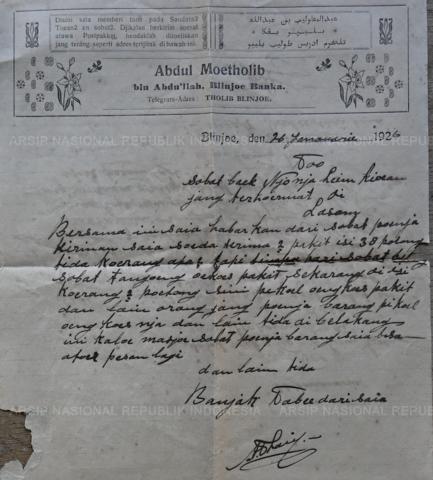 Disini saia memberi taoe pada Saudara2
Toean2 en sobat2. Djikalau berkirim soerat
atawa Postpakket, hendaklah ditoeliskan
jang terang seperti adres terjinja di bawah ini.
عبدالمطلب بن عبدالله
بلينيو بڠكا
Abdul Moetholib
bin Abdu'llah, Blinjoe Banka.
Telegram-Adres: THOLIB BLINJOE.
Blinjoe, den 26 Januarie 1926
ARSIP NASIONAL REPUBLIK INDONESIA
Too
sobat baek Njonja Liem Kiean
jang terhoermat di
Lasem
Bersama ini saia habarkan dari sobat poenja
kiriman saia soeda terima 2 pakit isi 38 potong
tida koerang apa2 tapi
sobat tangoeng oekos pakit sekarang di isi
koerang 2 poetong sini pikoel oengkos pakit
dan lain orang jang poenja barang pikoel
oengkos nja dan lain tida di belakang
ini kaloe masjoe sobat poenja barang saia bisa
atoer pesan lagi
dan lain tida
Banjak Tabee dari saia
ARSIP NASIONAL REPUBLIK INDONESIA